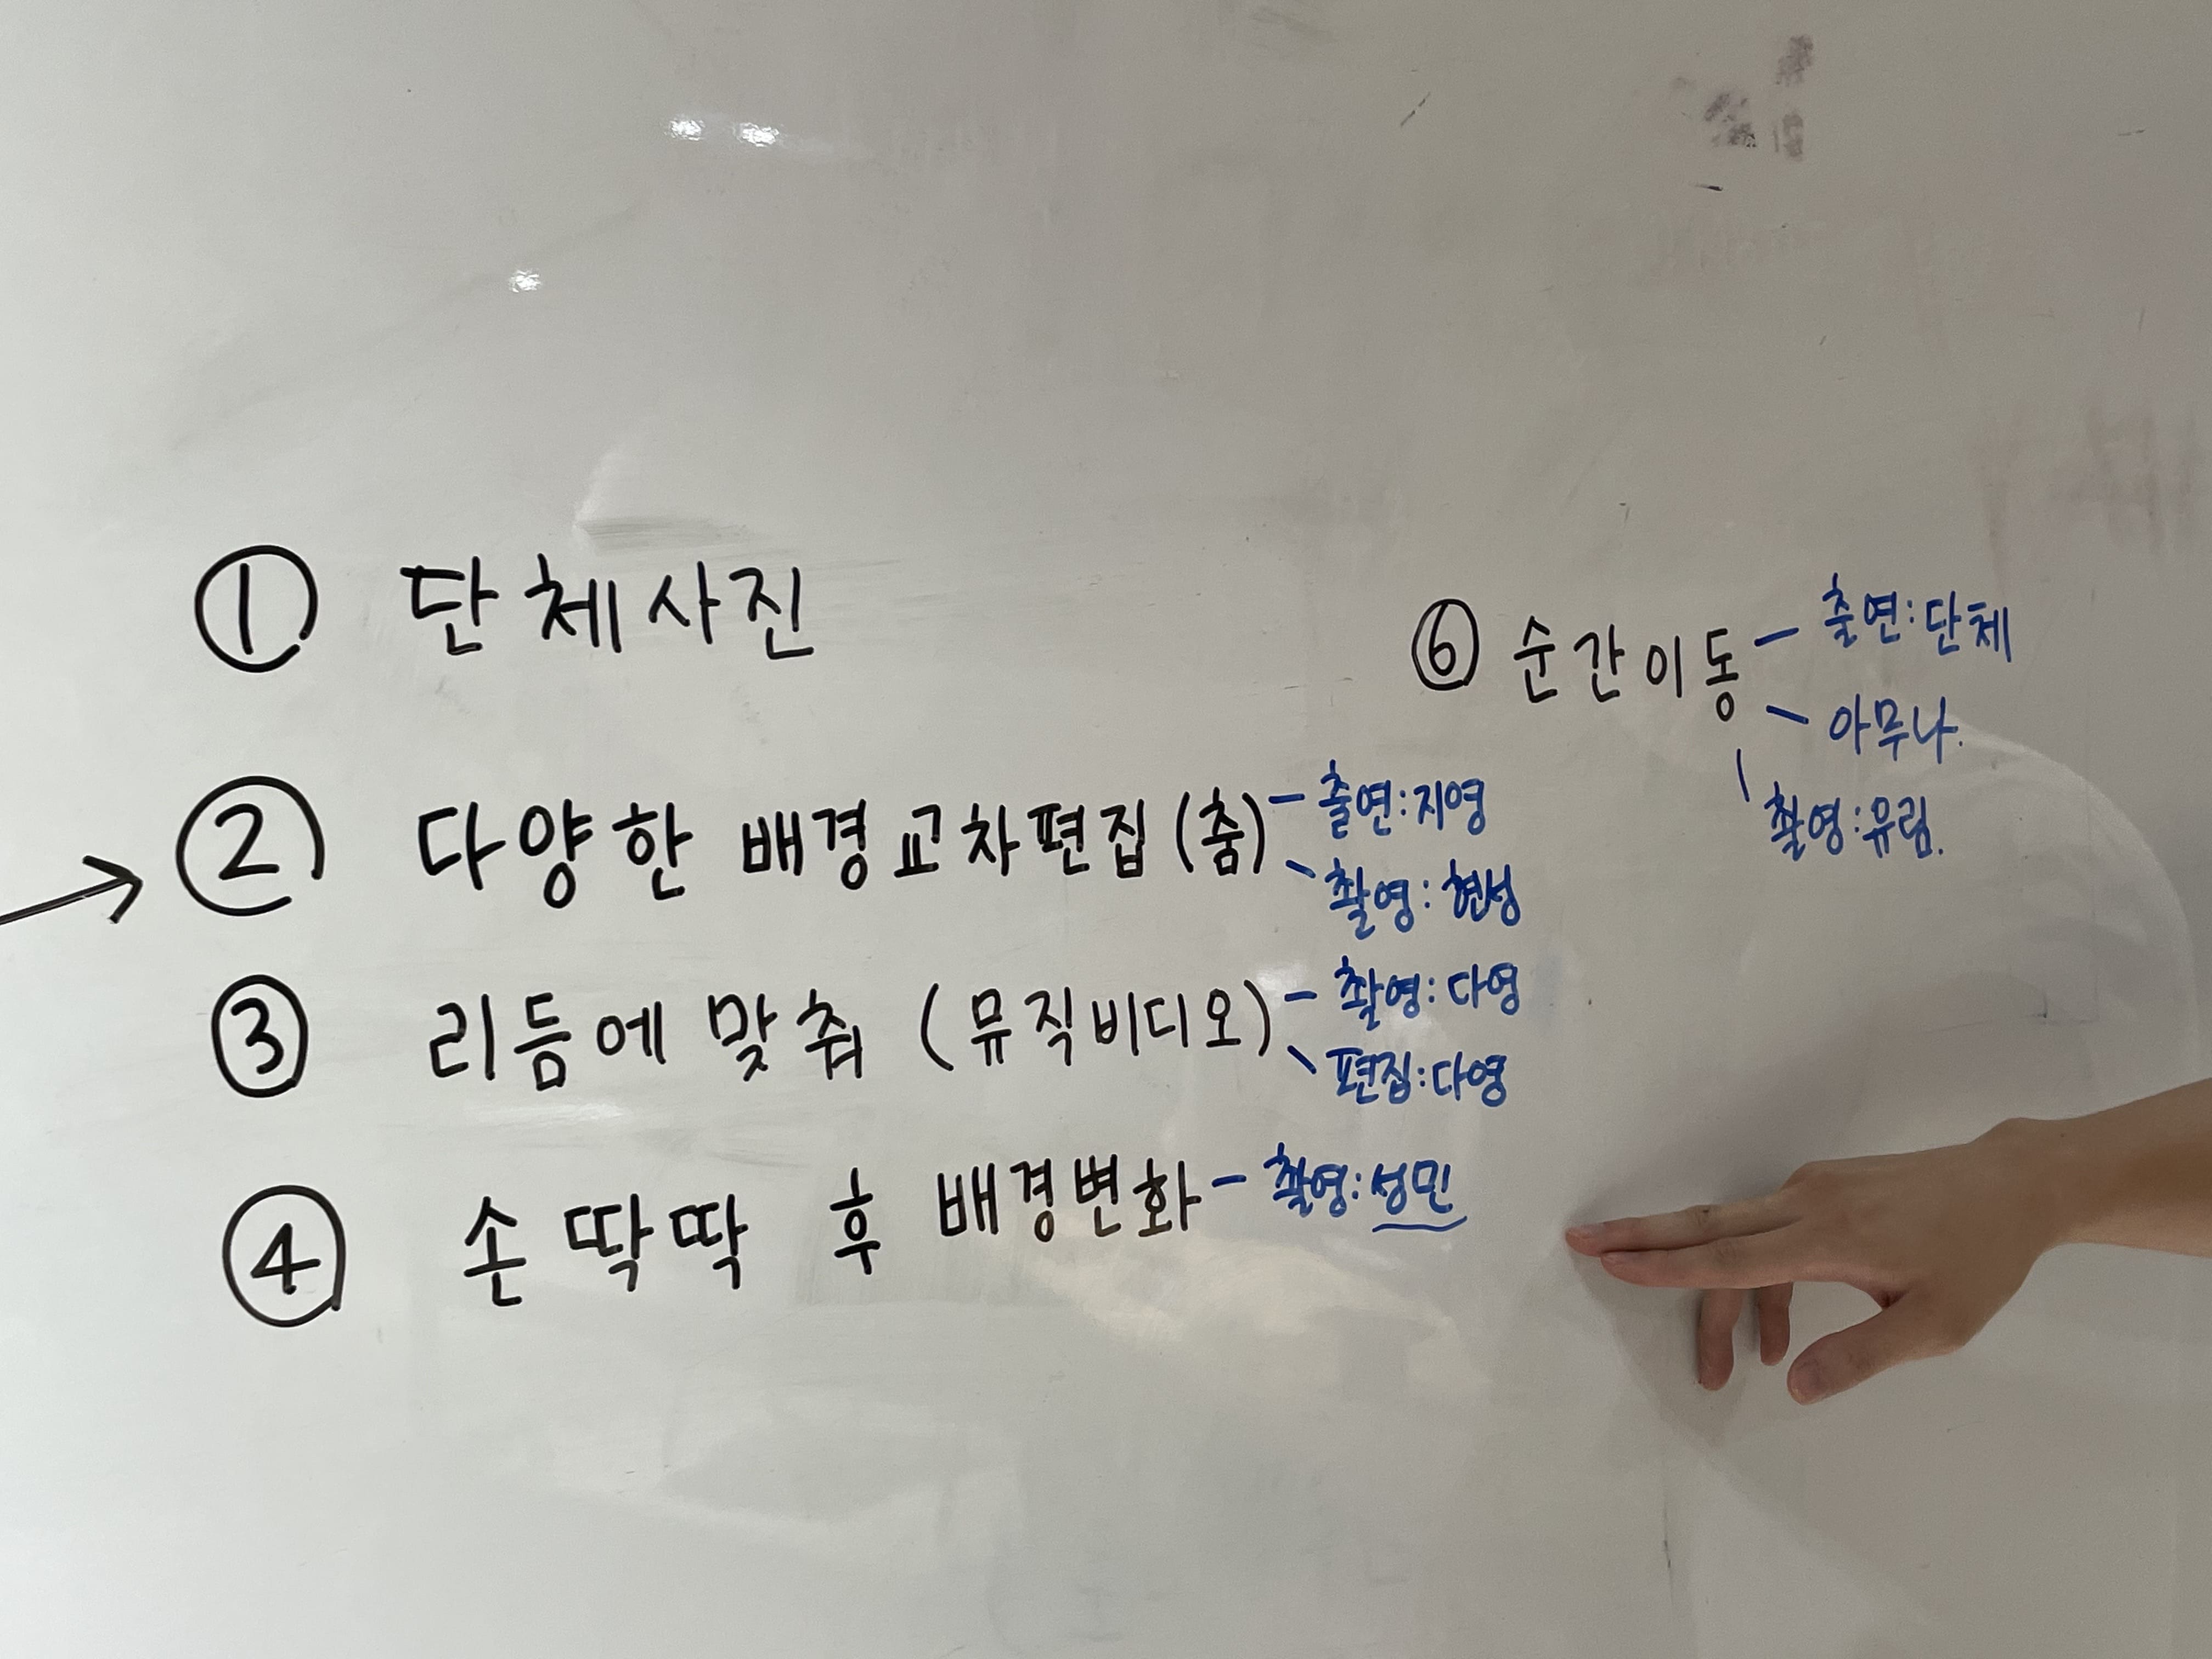 ① 단체사진
② 다양한 배경 교차편집 (춤) - 출연: 지영
- 촬영: 현성
③ 리듬에 맞춰 (뮤직비디오) - 촬영: 다영
- 편집: 다영
④ 손 딱딱 후 배경변화 - 촬영: 성민
⑥ 순간이동 - 출연: 단체
- 아무나.
촬영: 유림.